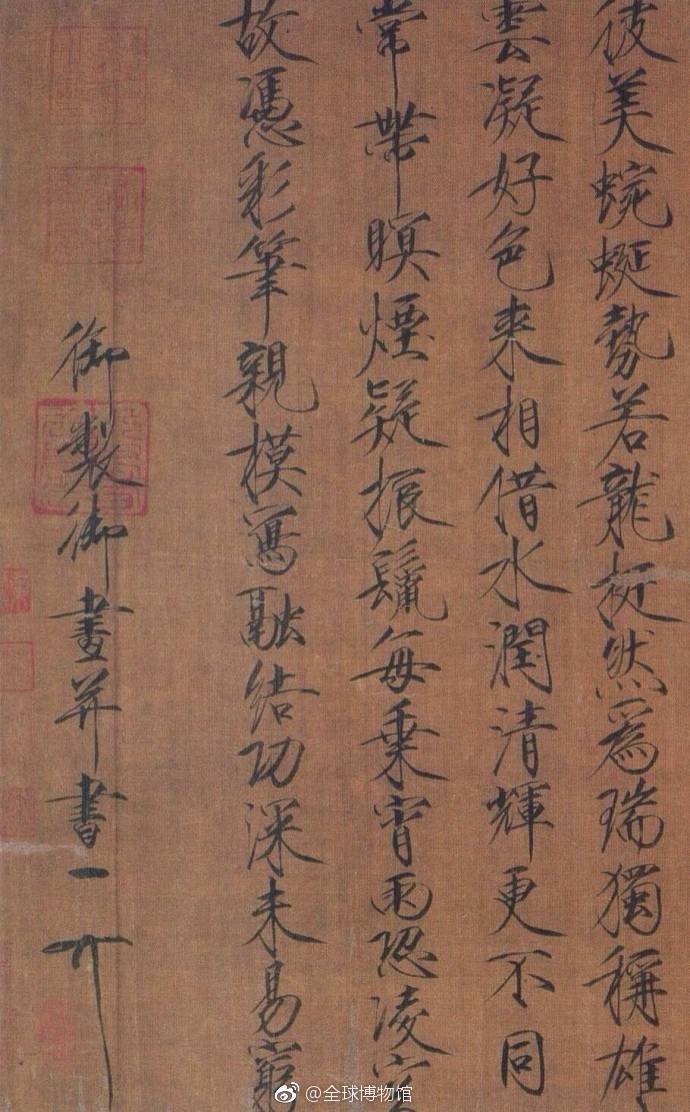 彼美蜿蜒勢若龍挺然爲瑞獨稱雄
雲凝好色來相借水潤清輝更不同
常帶暝煙疑振鬣每乘宵雨恐凌
故憑彩筆親模寫融結功深未易窮
御製御畫并書
@全球博物馆